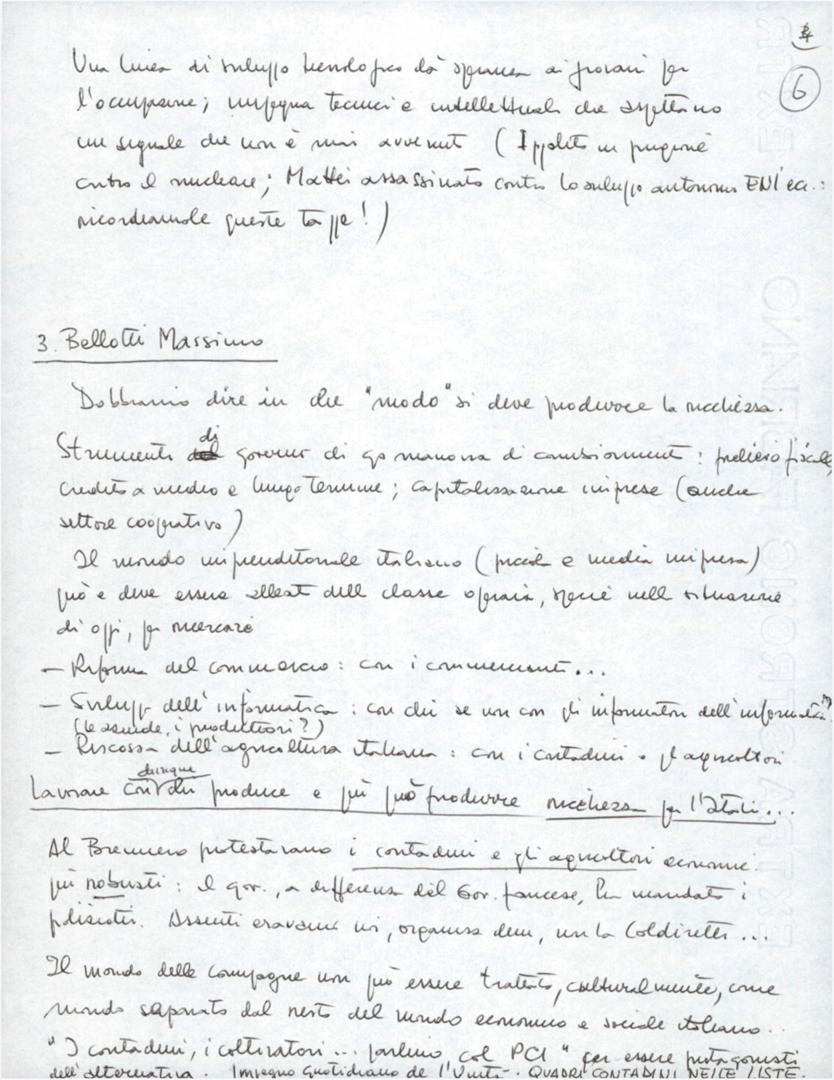 6
Una linea di sviluppo tecnologico dà speranza ai giovani per
l'occupazione; impegna tecnici e intellettuali che aspettano
un segnale che non è mai avvenuto (Ippolito in prigione
contro il nucleare; Mattei assassinato contro lo sviluppo autonomo ENI ecc.:
ricordiamole queste tappe!)
3. Bellotti Massimo
Dobbiamo dire in che "modo" si deve produrre la ricchezza.
Strumenti di governo di manovra di : prelievo fiscale,
credito a medio e lungo termine; capitalizzazione imprese (anche
settore cooperativo)
Il mondo imprenditoriale italiano (piccola e media impresa)
può e deve essere alleato della classe operaia, specie nella situazione
di oggi, per ricercare
- Riforma del commercio: con i commercianti...
- Sviluppo dell'informatica: con chi se non con gli informatori dell'informatica?
(le aziende, i produttori?)
- Riscossa dell'agricoltura italiana: con i contadini e gli agricoltori
Lavorare dunque con chi produce e più può produrre ricchezza per l'Italia...
Al Brennero protestavano i contadini e gli agricoltori economic.
più robusti: il gov., a differenza del Gov. francese, ha mandato i
poliziotti. Assenti eravamo noi, organizza dem, non la Coldiretti...
Il mondo delle campagne non può essere trattato, culturalmente, come
mondo separato dal resto del mondo economico e sociale italiano..
"I contadini, i coltivatori... parlino, col PCI" per essere protagonisti
dell'alternativa. Impegno quotidiano de l'Unità. QUADRI CONTADINI NELLE LISTE.